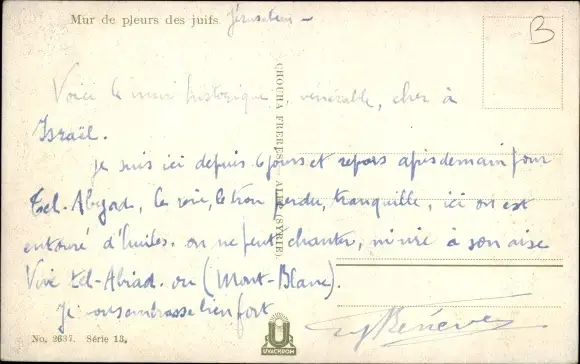 Mur de pleurs des juifs. Jérusalem
B
Voici le mur historique, vénérable, cher à
Israël.
Je suis ici depuis 6 jours et repars après demain pour
Tel-Abyad, le roi, le trou perdu, tranquille, ici on est
entouré d'huiles. on ne peut chanter, ni rire à son aise
Vive tel-Abiad. ou (Mont-Blanc).
Je vous embrasse bien fort
CHOUHA FRERES, ALEP (SYRIE).
No. 2637. Série 13.
U
UVACHROM